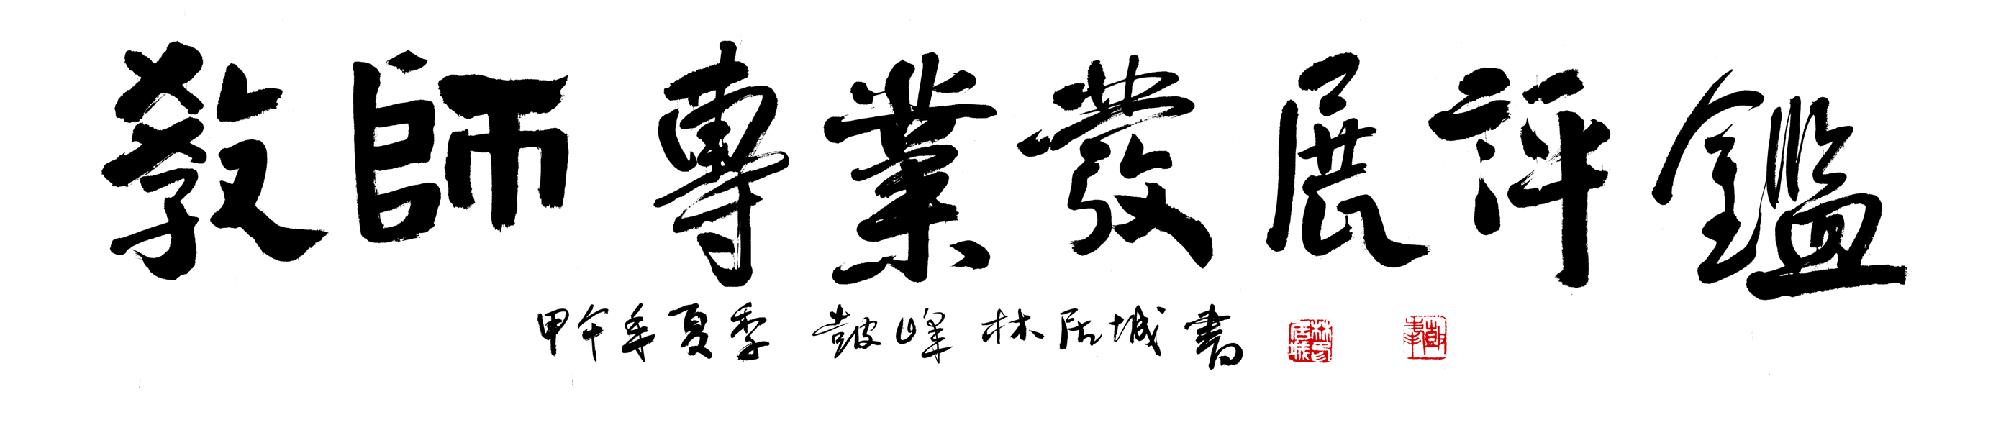 教師專業發展評鑑
甲午年夏季 鼓峰 林居城書